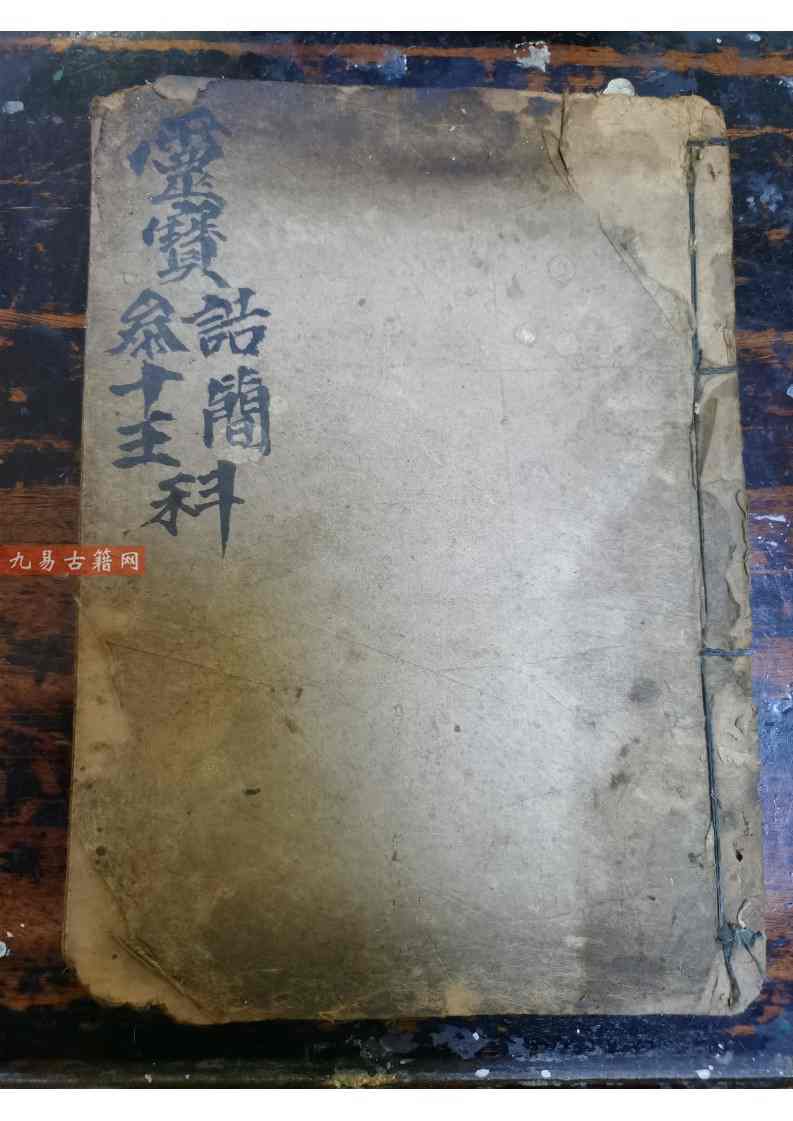 靈寶
誥簡
叅十王
科
九易古籍网